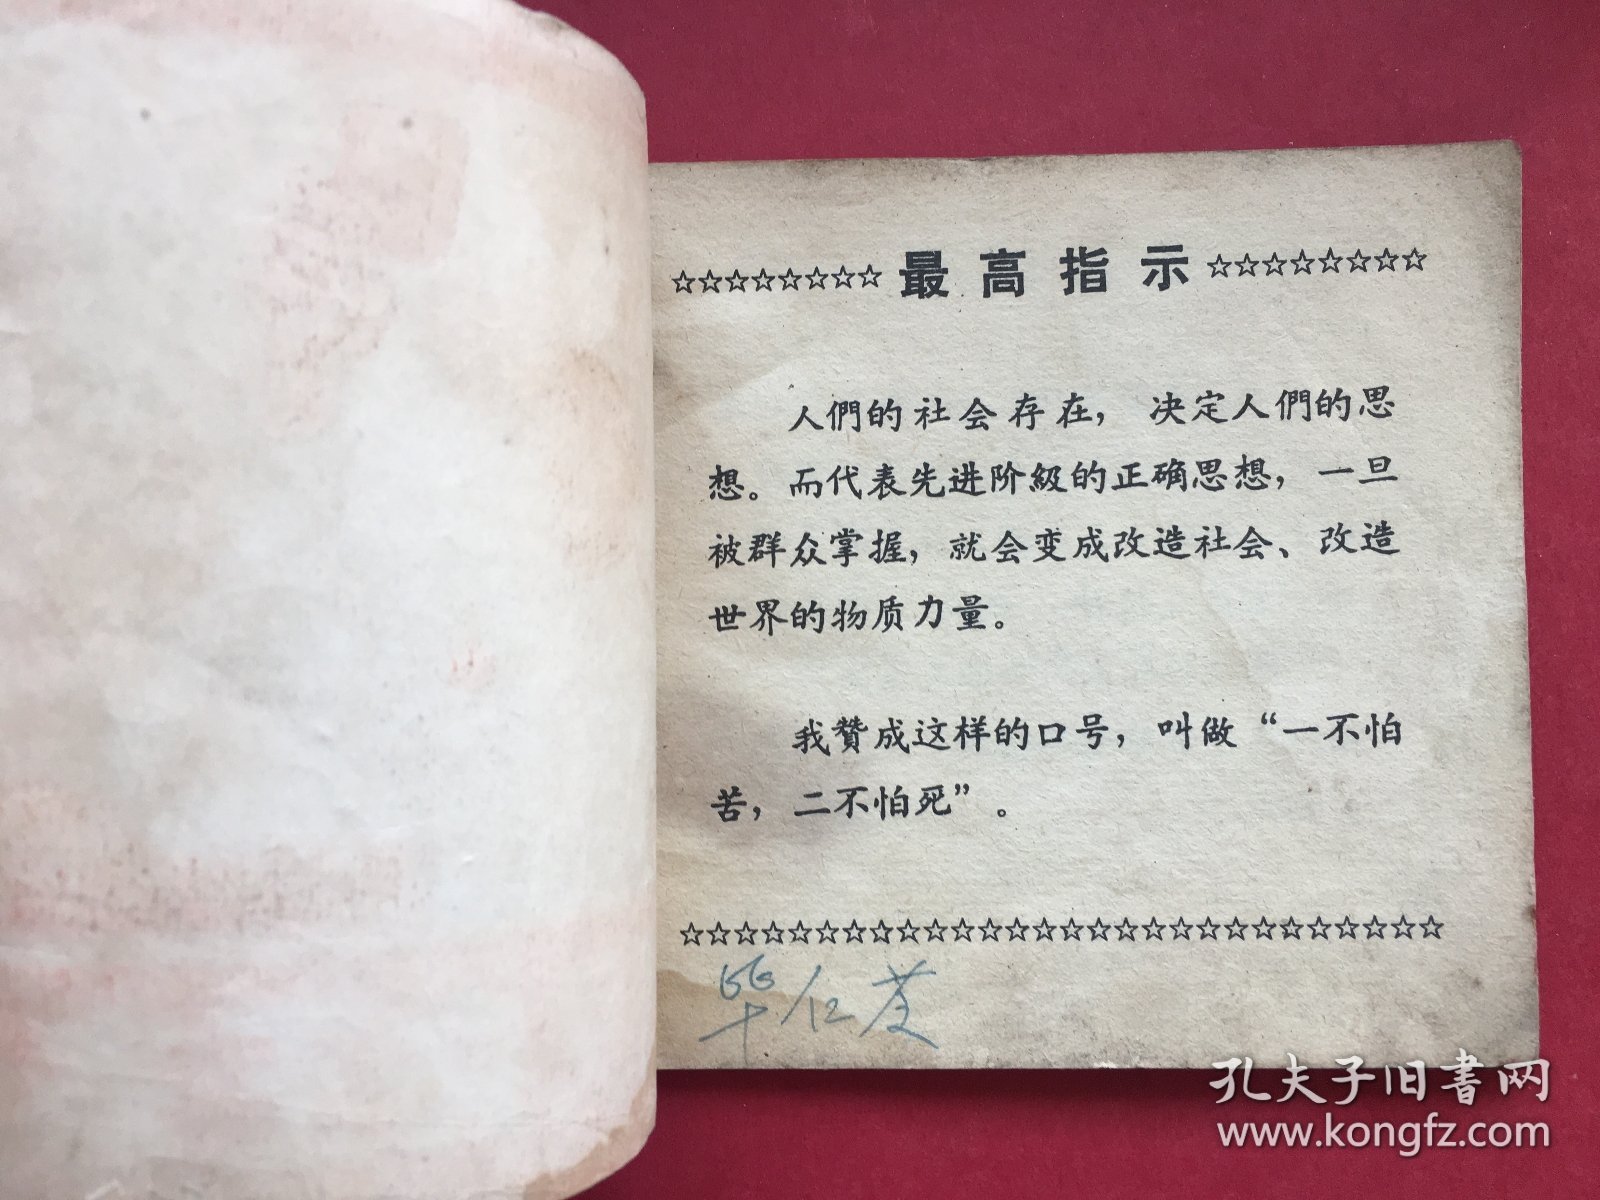 ☆☆☆☆☆☆☆☆最高指示☆☆☆☆☆☆☆☆
人們的社会存在，决定人們的思
想。而代表先进阶級的正确思想，一旦
被群众掌握，就会变成改造社会、改造
世界的物质力量。
我贊成这样的口号，叫做“一不怕
苦，二不怕死”。
☆☆☆☆☆☆☆☆☆☆☆☆☆☆☆☆☆☆☆☆☆☆☆☆☆☆☆☆
毕仁
孔夫子旧書网
www.kongfz.com